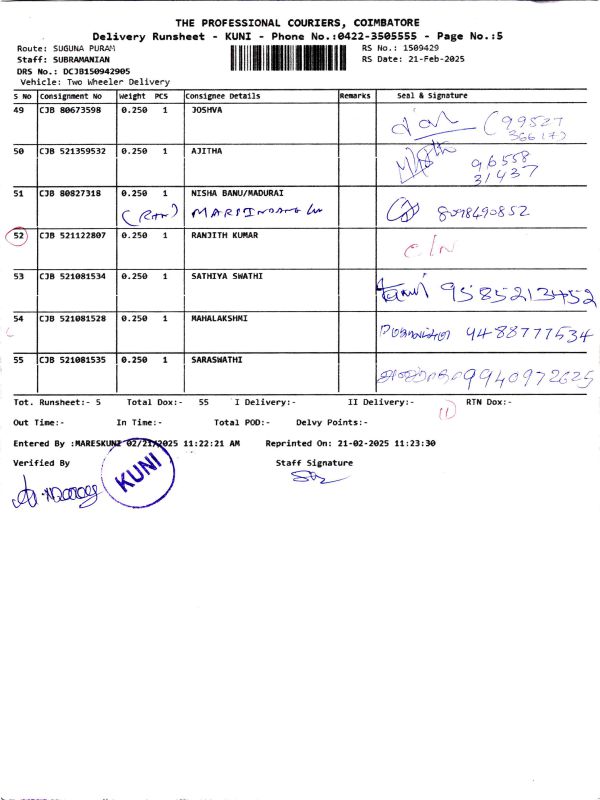 THE PROFESSIONAL COURIERS, COIMBATORE
Delivery Runsheet - KUNI - Phone No.:0422-3505555 - Page No.:5
Route: SUGUNA PURAM RS No.: 1509429
Staff: SUBRAMANIAN RS Date: 21-Feb-2025
DRS No.: DCJB150942905
Vehicle: Two Wheeler Delivery
S No Consignment No Weight PCS Consignee Details Remarks Seal & Signature
49 CJB 80673598 0.250 1 JOSHVA
50 CJB 521359532 0.250 1 AJITHA
96558
31437
51 CJB 80827318 0.250 1 NISHA BANU/MADURAI
8098490852
52 CJB 521122807 0.250 1 RANJITH KUMAR
53 CJB 521081534 0.250 1 SATHIYA SWATHI
9585213452
54 CJB 521081528 0.250 1 MAHALAKSHMI
9488777534
55 CJB 521081535 0.250 1 SARASWATHI
9940972625
Tot. Runsheet:- 5 Total Dox:- 55 I Delivery:- II Delivery:- RTN Dox:-
11
Out Time:- In Time:- Total POD:- Delvy Points:-
Entered By :MARESKUNI 02/21/2025 11:22:21 AM Reprinted On: 21-02-2025 11:23:30
Verified By Staff Signature
KUNI